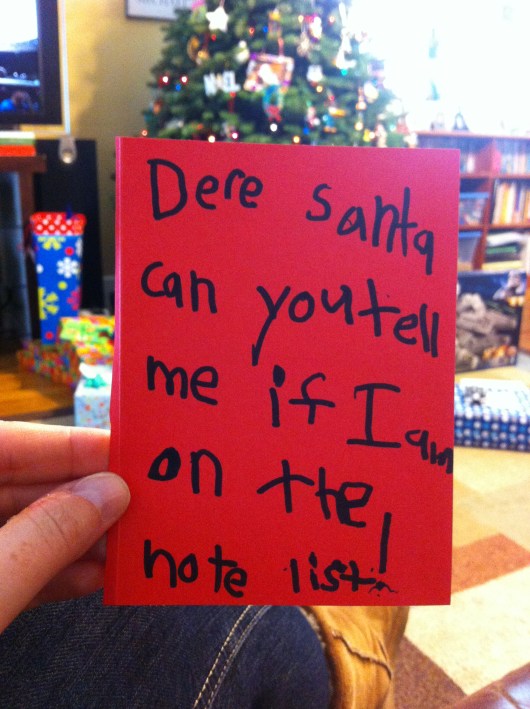 Dere santa
can you tell
me if I am
on the
note list!